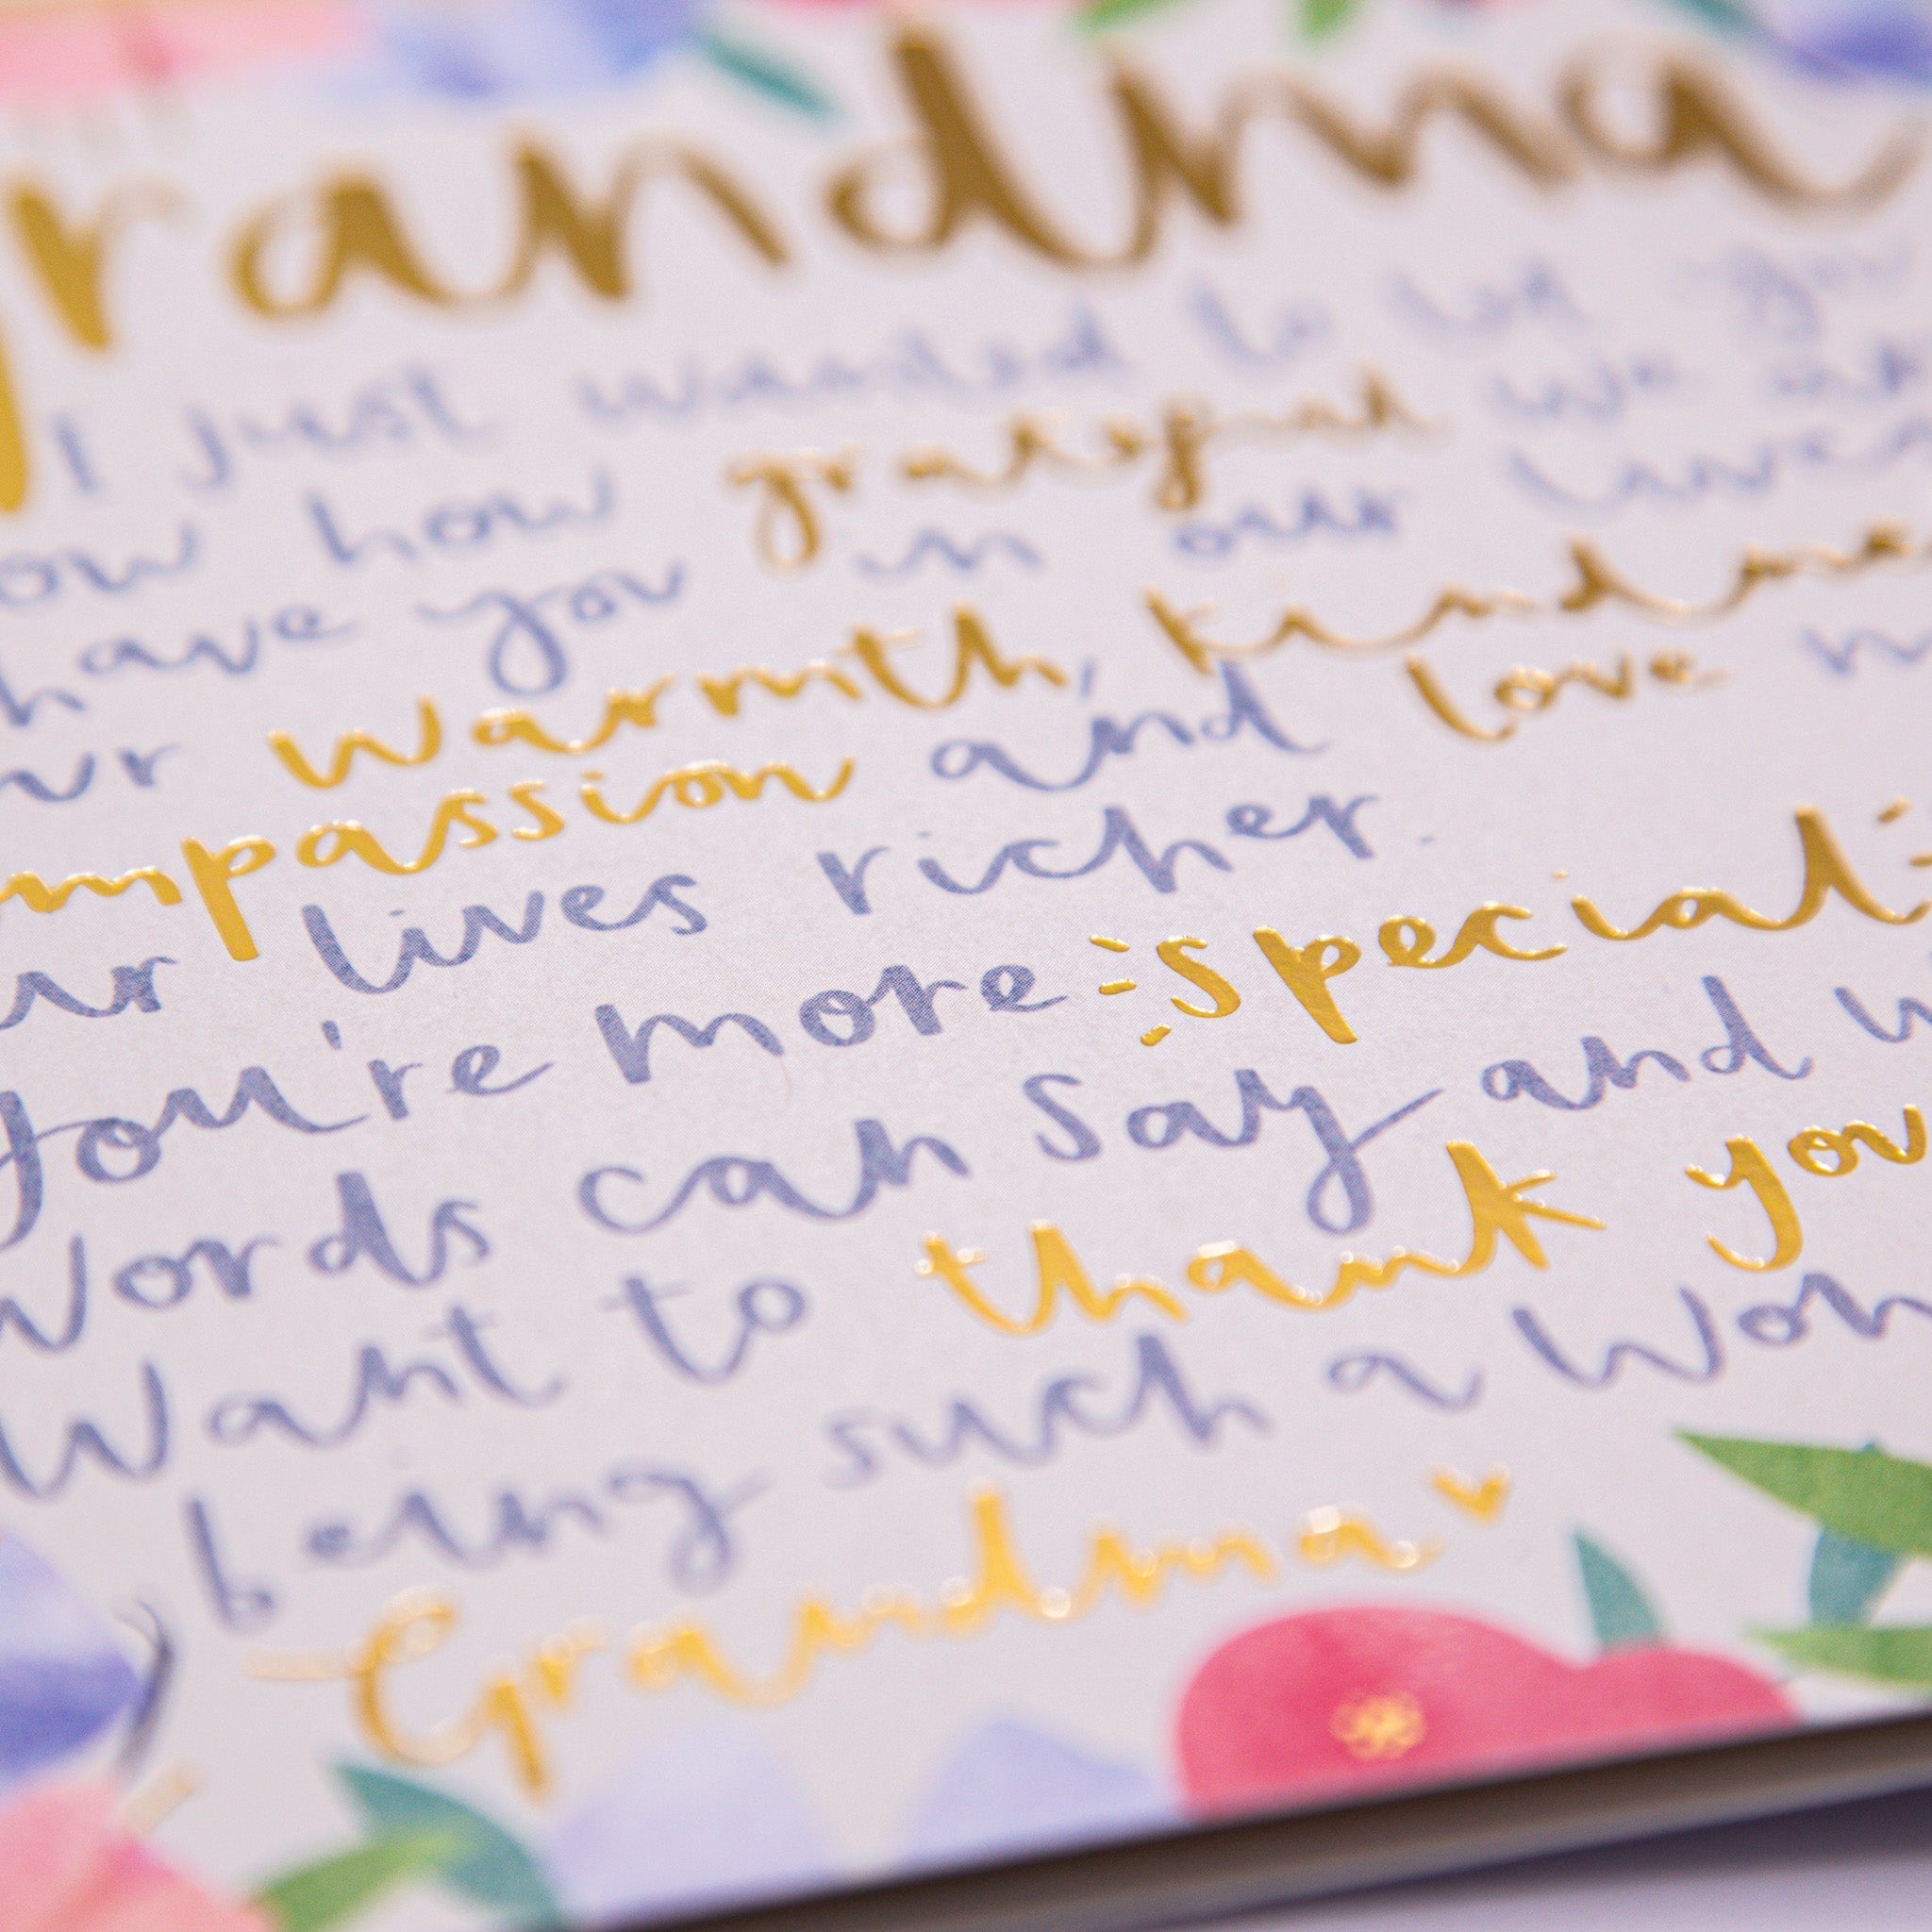 randma
I just wanted to let you
ow how grateful we are
have you in our lives
ur warmth, kindnes
mpassion and love
ur lives richer.
You're more special
words can say and w
want to thank you
being such a won
Grandma